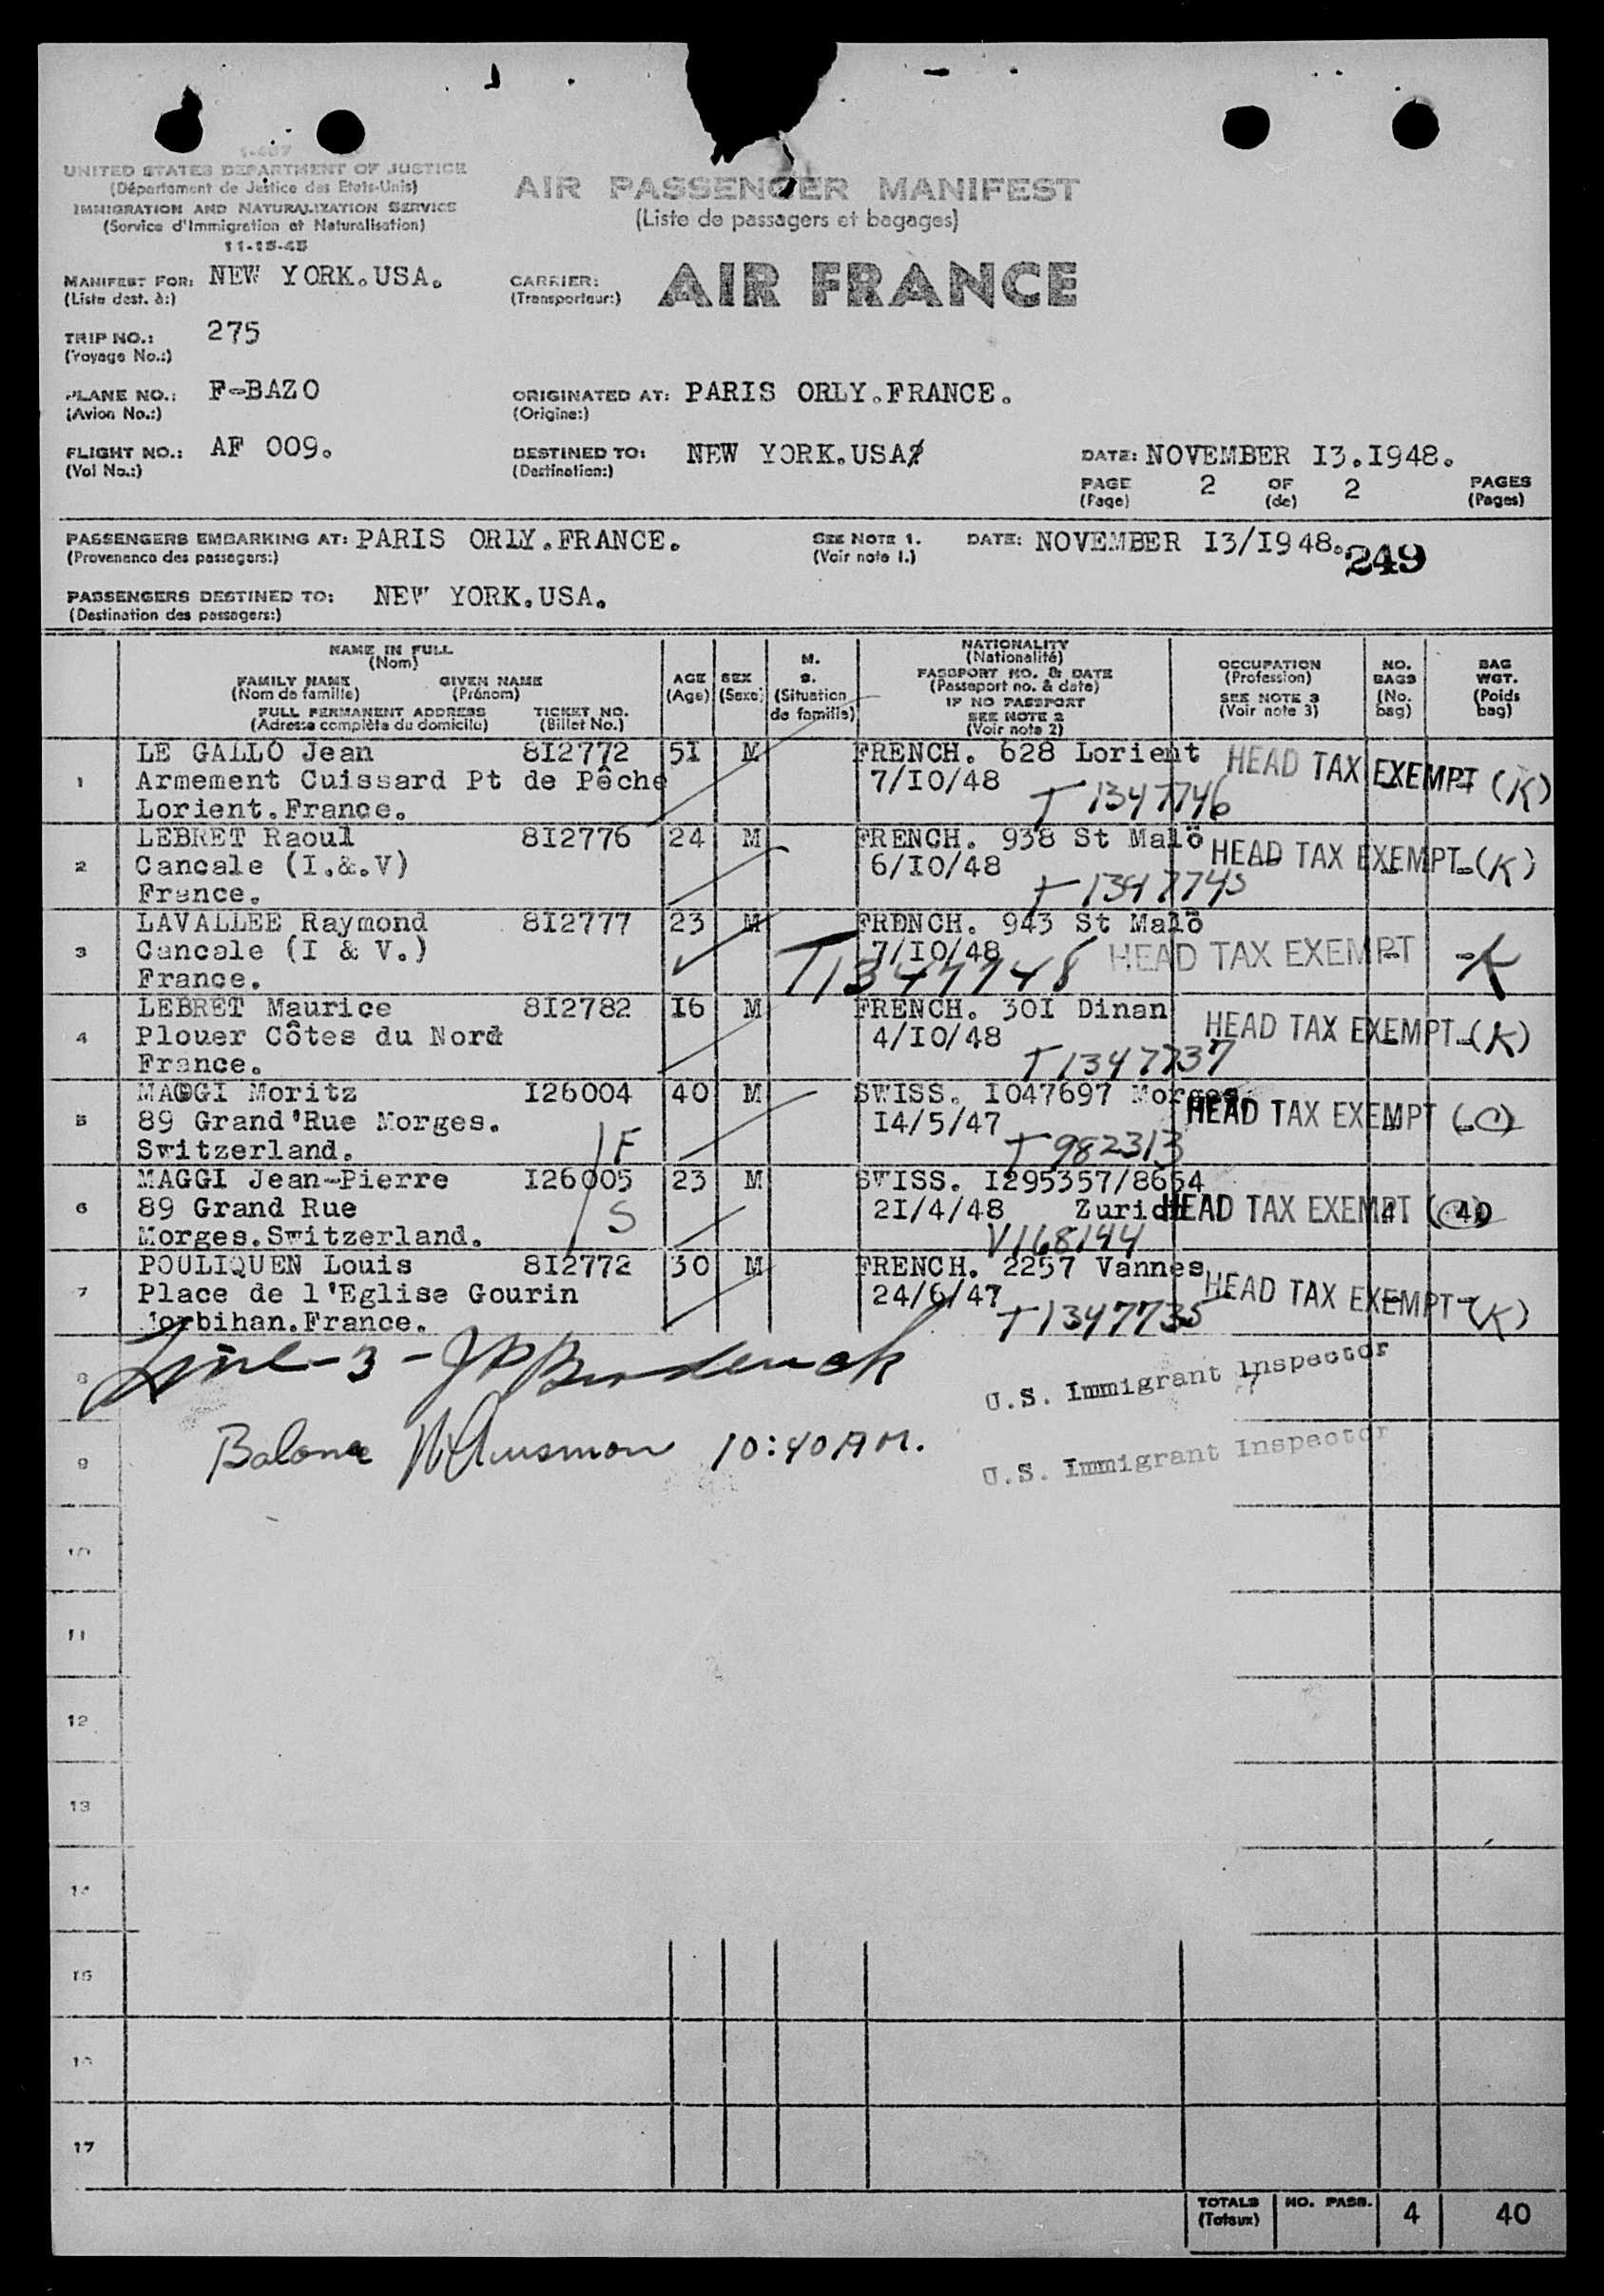 UNITED STATES DEPARTMENT OF JUSTICE
(Département de Justice des Etats-Unis)
IMMIGRATION AND NATURALIZATION SERVICE
(Service d'Immigration et Naturalisation)
11-15-45
AIR PASSENGER MANIFEST
(Liste de passagers et bagages)
MANIFEST FOR: NEW YORK.USA.
(Liste dest. à:)
CARRIER: AIR FRANCE
(Transporteur:)
TRIP NO.: 275
(Voyage No.:)
PLANE NO.: F-BAZO
(Avion No.:)
ORIGINATED AT: PARIS ORLY.FRANCE.
(Origine:)
FLIGHT NO.: AF 009.
(Vol No.:)
DESTINED TO: NEW YORK.USA
(Destination:)
DATE: NOVEMBER I3.I948.
PAGE 2 OF 2 PAGES
(Page) (de) (Pages)
PASSENGERS EMBARKING AT: PARIS ORLY.FRANCE.
(Provenance des passagers:)
SEE NOTE 1.
(Voir note 1.)
DATE: NOVEMBER I3/I948.
249
PASSENGERS DESTINED TO: NEW YORK.USA.
(Destination des passagers:)
NAME IN FULL
(Nom)
FAMILY NAME GIVEN NAME
(Nom de famille) (Prénom)
FULL PERMANENT ADDRESS TICKET NO.
(Adresse complète du domicile) (Billet No.)
AGE
(Age)
SEX
(Sexe)
M.
S.
(Situation
de famille)
NATIONALITY
(Nationalité)
PASSPORT NO. & DATE
(Passeport no. & date)
IF NO PASSPORT
SEE NOTE 2
(Voir note 2)
OCCUPATION
(Profession)
SEE NOTE 3
(Voir note 3)
NO.
BAGS
(No.
bag)
BAG
WGT.
(Poids
bag)
LE GALLO Jean 8I2772 5I M FRENCH. 628 Lorient HEAD TAX EXEMPT (K)
1 Armement Cuissard Pt de Pêche 7/I0/48 T1347746
Lorient.France.
LEBRET Raoul 8I2776 24 M FRENCH. 938 St Malo HEAD TAX EXEMPT (K)
2 Cancale (I.&.V) 6/I0/48 T1347745
France.
LAVALLEE Raymond 8I2777 23 M FRENCH. 943 St Malo
3 Cancale (I & V.) 7/I0/48 T1347748 HEAD TAX EXEMPT - K
France.
LEBRET Maurice 8I2782 I6 M FRENCH. 30I Dinan HEAD TAX EXEMPT (K)
4 Plouer Côtes du Nord 4/I0/48 T1347737
France.
MAGGI Moritz I26004 40 M SWISS. I047697 Morges HEAD TAX EXEMPT (C)
5 89 Grand'Rue Morges. I4/5/47 T982313
Switzerland. F
MAGGI Jean-Pierre I26005 23 M SWISS. I295357/8654
6 89 Grand Rue S 2I/4/48 Zurich HEAD TAX EXEMPT 4 40
Morges.Switzerland. V168144
POULIQUEN Louis 8I2772 30 M FRENCH. 2257 Vannes HEAD TAX EXEMPT (K)
7 Place de l'Eglise Gourin 24/6/47 T1347735
Morbihan.France.
8 Line-3 - U.S. Immigrant Inspector
9 Balance 10:40 AM. U.S. Immigrant Inspector
10
11
12
13
14
15
16
17
TOTALS NO. PASS. 4 40
(Totaux)